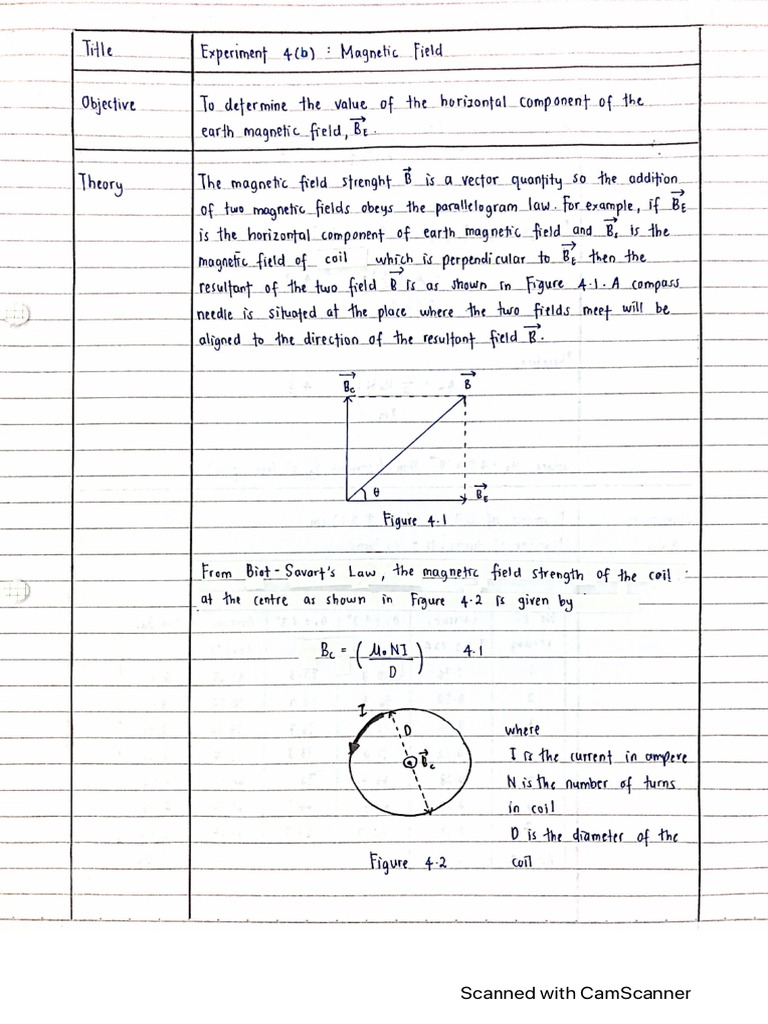 Title
Experiment 4(b) : Magnetic Field
Objective
To determine the value of the horizontal component of the
earth magnetic field, B⃗E.
Theory
The magnetic field strenght B⃗ is a vector quantity so the addition
of two magnetic fields obeys the parallelogram law. For example, if B⃗E
is the horizontal component of earth magnetic field and B⃗c is the
magnetic field of coil which is perpendicular to B⃗E then the
resultant of the two field B⃗ is as shown in Figure 4.1. A compass
needle is situated at the place where the two fields meet will be
aligned to the direction of the resultant field B⃗.
B⃗c
B⃗
θ
B⃗E
Figure 4.1
From Biot-Savart's Law, the magnetic field strength of the coil
at the centre as shown in Figure 4.2 is given by
Bc = (μ₀NI / D) 4.1
I
D
B⃗c
where
I is the current in ampere
N is the number of turns
in coil
D is the diameter of the
coil
Figure 4.2
Scanned with CamScanner